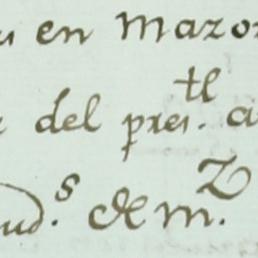 en Mazo
del pres.tl a
ud.s de m.z